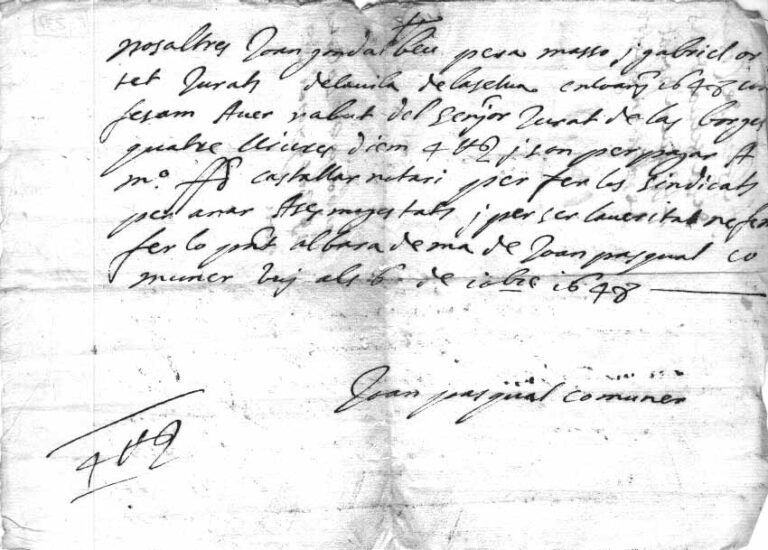 nosaltres Joan gondalbeu pera masso j gabriel or
set Jurats delavila delaselva en lo anj 1648 con
fesam Auer rabut del senyor Jurat de las borges
quatre lliures diem 4 ℔ j son per pagar A
mº castallar notari per fer los sindicats
per anar A ses magestats j per ser la veritat ne fem
fer lo pnt albara de ma de Joan pasqual co
muner vuj als 6 de 10bre 1648
Joan pasqual comuner
4 ℔